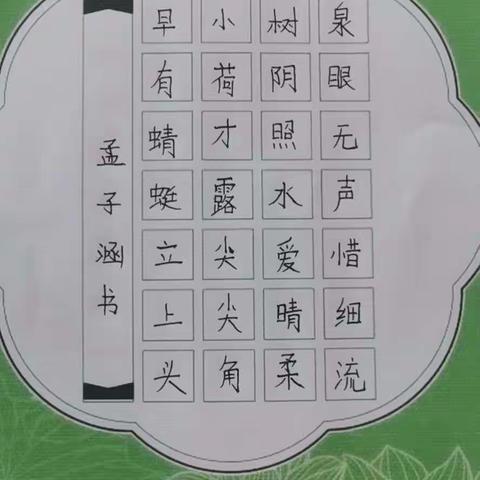 泉眼无声惜细流
树阴照水爱晴柔
小荷才露尖尖角
早有蜻蜓立上头
孟子涵书